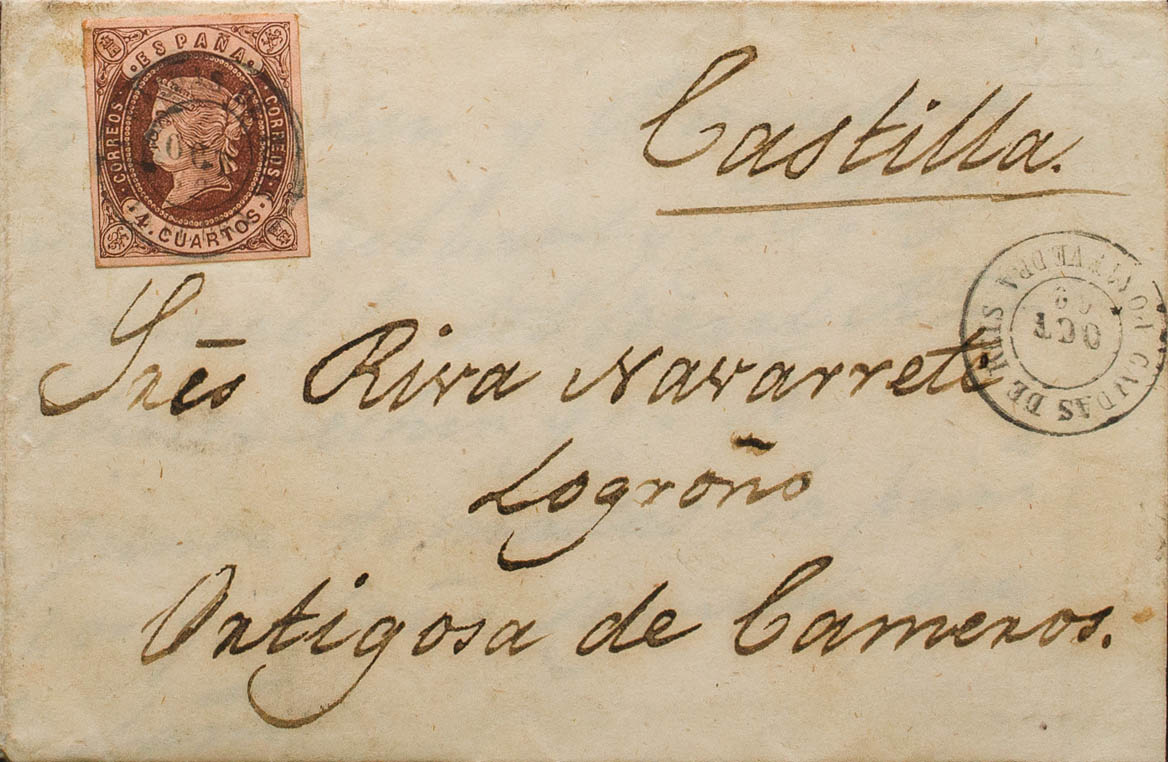 ESPAÑA
CORREOS CORREOS
4. CUARTOS.
Castilla.
CALDAS DE REIS
PONTEVEDRA
OCT
Inēs Riva Navarrete
Logroño
Ortigosa de Cameros.